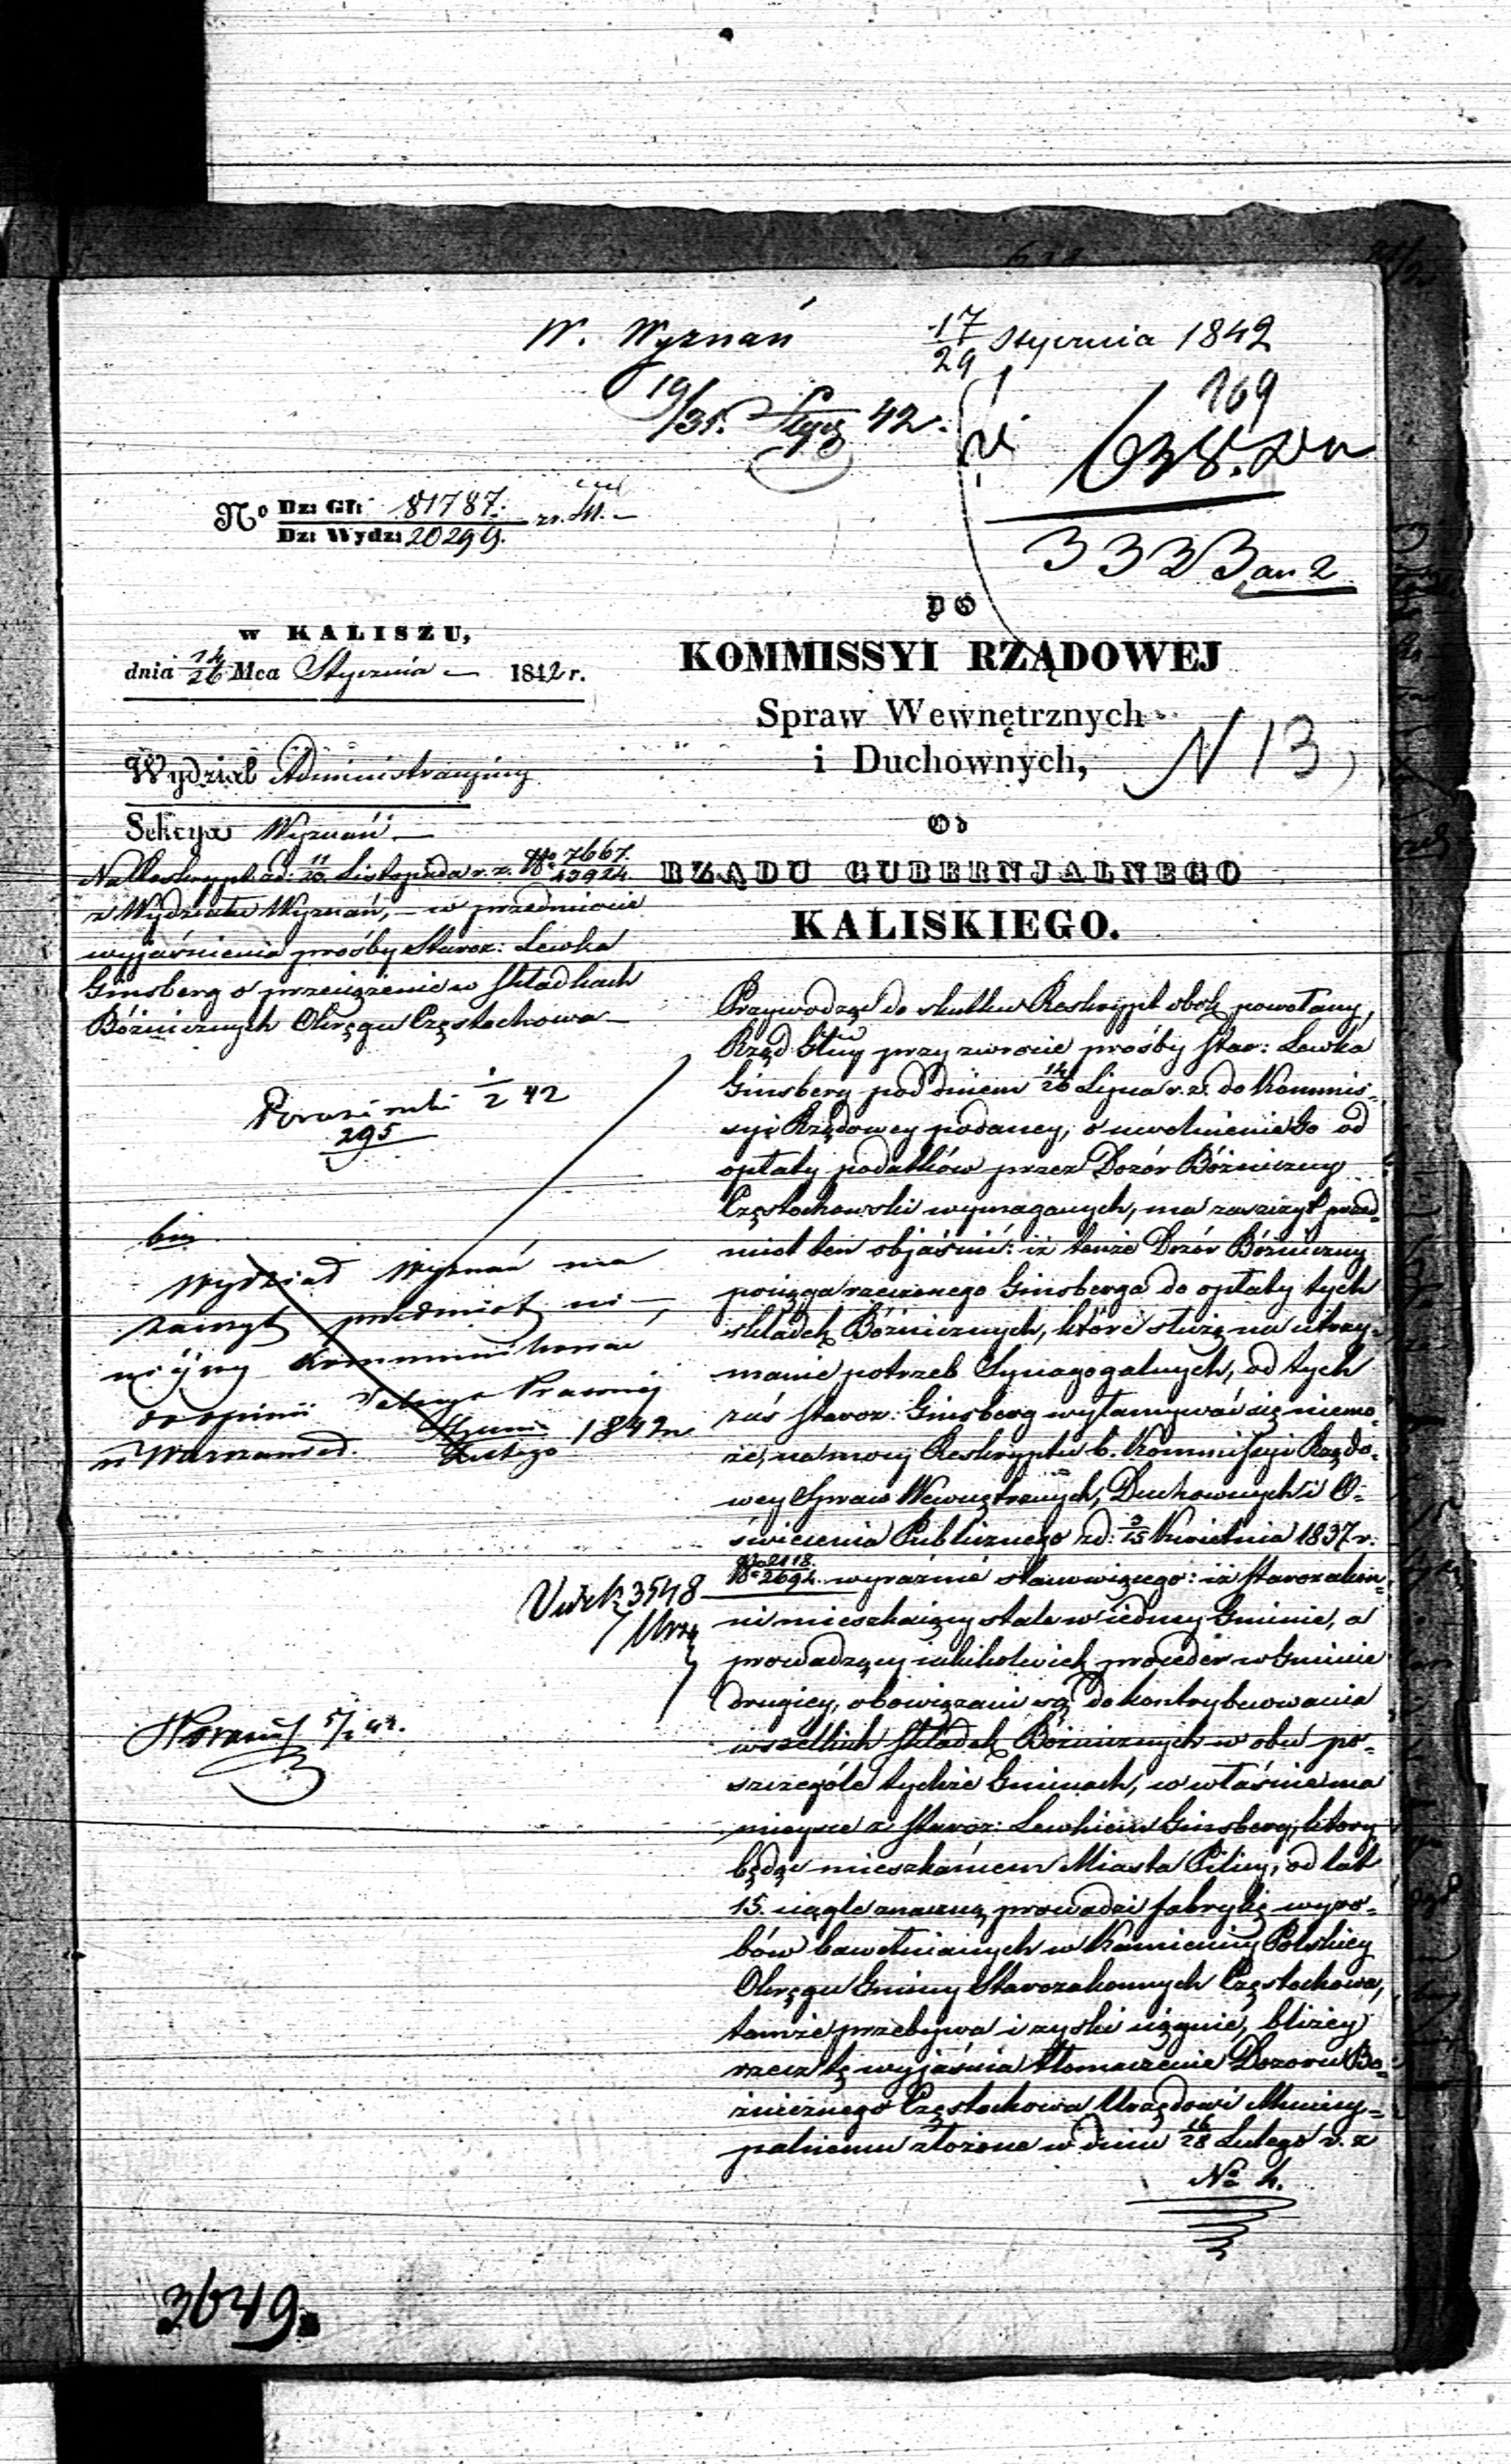 W. Wyznań
17/29 Stycznia 1842
19/31. Stycz 42.
169
638.
3323
No Dz: Gł: 81787.
Dz: Wydz: 20299.
w KALISZU,
dnia 14/26 Mca Stycznia 1842 r.
Wydział Administracyiny
Sekcya Wyznań
Na Reskrypt zd: 11/23 Listopada r. z. No 7667./13924.
z Wydziału Wyznań, – w przedmiocie
wyjaśnienia prośby Staroz: Lewka
Ginsberg o przeciążenie w Składkach
Bóżnicznych Okręgu Częstochowa
295
Wydział Wyznań ma
zaszczyt przedmiot ni-
niejszy kommunikować
do opinii Prawnéj
Lutego 1842
3548
DO
KOMMISSYI RZĄDOWEJ
Spraw Wewnętrznych
i Duchownych,
N 13
Od
RZĄDU GUBERNJALNEGO
KALISKIEGO.
Przywodząc do skutku Reskrypt obok powołany,
Rząd Gluy przy zwrocie prośby Star: Lewka
Ginsberg pod dniem 14/26 Lipca r. z. do Kommis-
syi Rządowey podaney, o uwolnienie Go od
opłaty podatków przez Dozór Bóżniczny
Częstochowski wymaganych, ma zaszczyt przed-
miot ten objaśnić: iż tenże Dozór Bóżniczny
pociąga rzeczonego Ginsberga do opłaty tych
składek Bóżnicznych, które służą na utrzy-
manie potrzeb Synagogalnych, od tych
zaś Staroz: Ginsberg wyłamywać się niemo-
że, na mocy Reskryptu b. Kommissyi Rządo-
wey Spraw Wewnętrznych, Duchownych i O-
świecenia Publicznego zd: 3/15 Kwietnia 1837 r.
No 2118./2694. wyraźnie stanowiącego: iż Starozakon-
ni mieszkaiący stale w iedney Gminie, a
prowadzący iakikolwiek proceder w Gminie
drugiey, obowiązani są do kontrybuowania
wszelkich Składek Bóżnicznych w obu po-
szczególe tychże Gminach, co właśnie ma
mieysce z Staroz: Lewkiem Ginsberg, który
będąc mieszkańcem Miasta Pilicy, od lat
15. ciągle znaczną prowadzi fabrykę wyro-
bów bawełnianych w Kamienicy Polskiey
Okręgu Gminy Starozakonnych Częstochowa,
tamże przebywa i zyski ciągnie, bliżey
rzecz tę wyjaśnia tłomaczenie Dozoru Bó-
żnicznego Częstochowa Urzędowi Municy-
palnemu złożone w dniu 16/28 Lutego r. z
No 4.
3649.